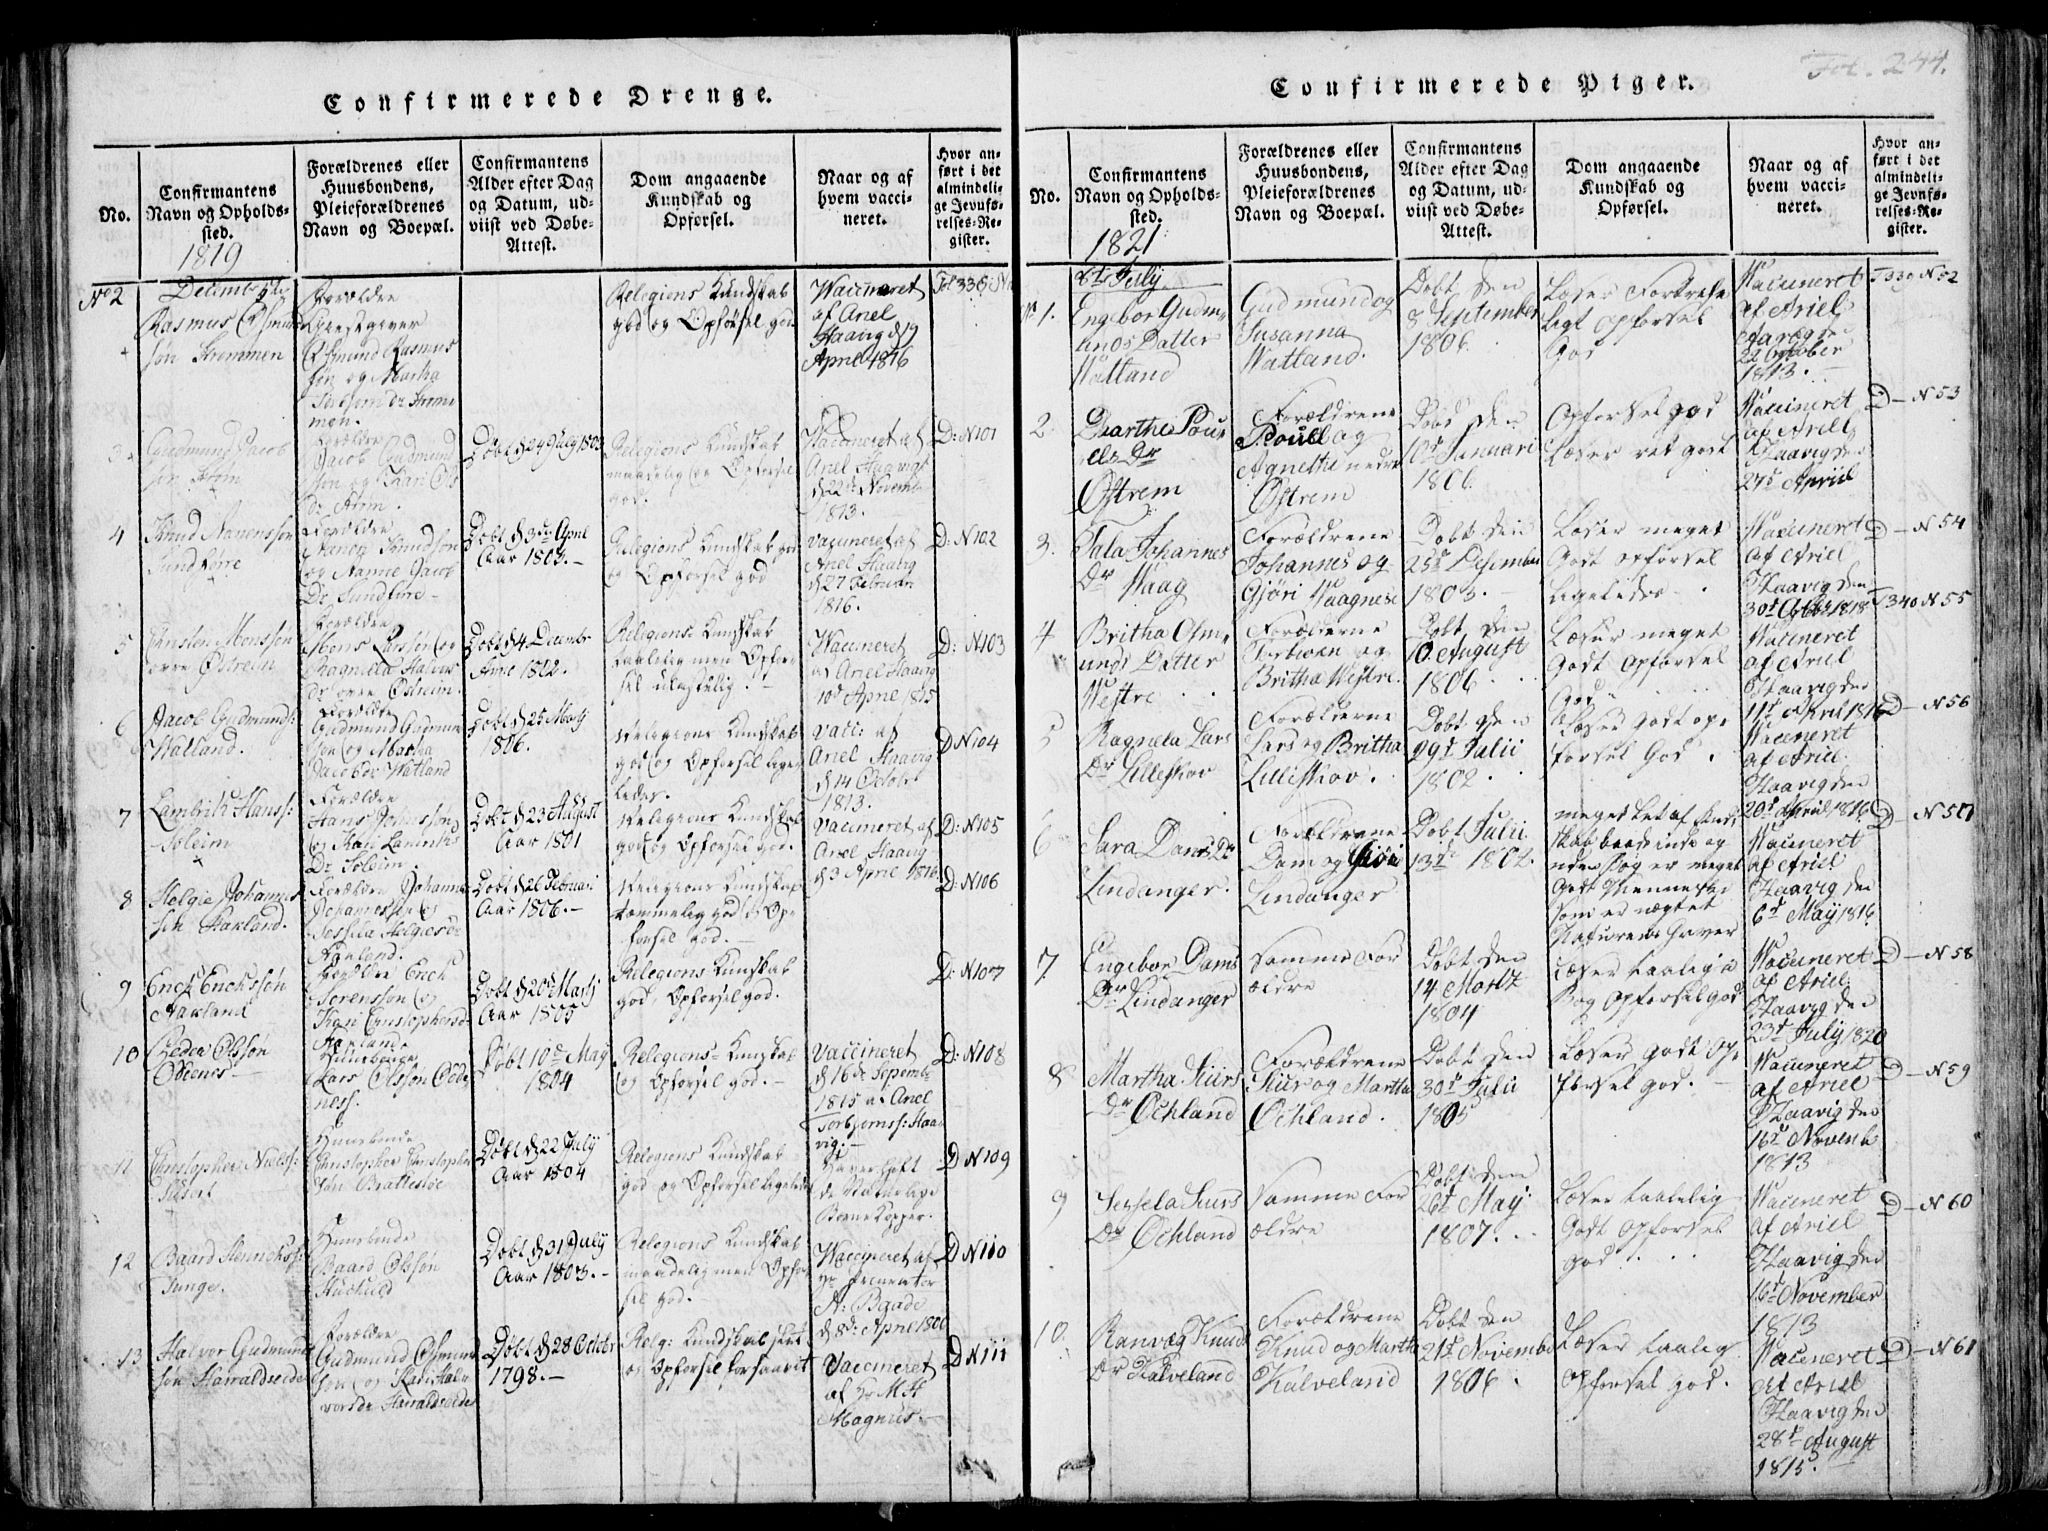 Confirmerede Drenge.
No.
Confirmantens
Navn og Opholds-
sted.
1819
Forældrenes eller
Huusbondens,
Pleieforældrenes
Navn og Boepæl.
Confirmantens
Alder efter Dag
og Datum, ud-
viist ved Døbe-
Attest.
Dom angaaende
Kundskab og
Opførsel.
Naar og af
hvem vacci-
neret.
Hvor an-
ført i det
almindeli-
ge Jevnfø-
relses-Re-
gister.
No 2
Rasmus
søn Strømmen
Forældre
Giestgiver
Osmund Rasmus
søn og Martha
Religions Kundskab
god og Opførsel god
Vaccineret
af Ariel
Haavig d 19
April 1816
3
Gudmund Jacob
søn
Forældre
Jacob Gudmund
søn og Kari
Døbt d 24 July 1803
Religions Kundskab
maadelig og Opførsel
god.
Vaccineret af
Ariel Haavig
d 22de Novemb
1813.
D: N 101
4
Knud
Forældre
Knudsøn
og Jacob
Døbt d 3de April
Aar 1803.
Religions Kundskab god
og Opførsel god
vaccineret af
Ariel Haavig
d 27 Februari
1816.
D: N 102
5
Monssøn
øvre Østrem
Forældre
Mons Larssøn og
Halvors
dr øvre Østrem.
Døbt d 4 Decembr
1802.
Religions Kundskab
taalelig men Opfør-
sel
Vaccineret
af Ariel Haavig
10d April 1815
D: N 103
6
Jacob Gudmunds:
Watland.
Forældre
Gudmund Gudmun
søn og Martha
Jacobdr Watland
Døbt d 25 Martj
1806.
Religions Kundskab
god og Opførsel lige-
ledes.
vacc: af
Ariel Haavig
d 14 October
1813.
D N 104
7
Lambrikt Hanss:
Søleim
Forældre
Hans
og Kari
Dr Søleim.
Døbt d 23 August
Aar 1801
Religions Kundskab
god og Opførsel god.
Vaccineret af
Ariel Haavig
d 3 April 1816
D: N 105
8
Helgie Johannes
søn
Forældre Johannes
Johannessøn og
Døbt d 26 Februari
Aar 1806.
Religions Kundskap
temmelig god
førsel god.
D: N 106
9
Erich Erichssøn
Forældre Erich
Sørenssøn og
Døbt d 20d Martj
Aar 1805
Religions Kundskab
god, Opførsel god.
D: N 107
10
Peder Olssøn
Ødenes
Huusbonde
Lars Olssøn Øde-
ness.
Døbt 10de May
1804
Religions Kundskab
og Opførsel god.
Vaccineret
d 16de Septemb
1815 af Ariel
Torbjørnss: Haa
vig.
D: N 108
11
Christopher
Huusbonde
Christopher Christopher
søn Brattestøe
Døbt d 22 July
Aar 1804
Religions Kundskab
god og Opførsel ligeledes
Haver haft
de Naturlige
Børne Kopper.
D N 109
12
Baard
Tunge.
Huusbonde
Baard Olssøn
Døbt d 31 July
Aar 1803.
Religions Kundskab
maadelig men Opfør
sel god.
Vaccineret af
d 8de April
D N 110
13
Halvor Gudmund
søn Haraldseide
Forældre
Gudmund Osmun
søn og Kari Hal-
vorsdr Haraldseide
Døbt d 28 Octobr
1798.
Relig: Kundskab slet
og Opførsel
Vaccineret
af Hr
Magnus.
D N 111
Fol. 244.
Confirmerede Piger.
No.
Confirmantens
Navn og Opholds-
sted.
1821
Forældrenes eller
Huusbondens,
Pleieforældrenes
Navn og Boepæl.
Confirmantens
Alder efter Dag
og Datum, ud-
viist ved Døbe-
Attest.
Dom angaaende
Kundskab og
Opførsel.
Naar og af
hvem vacci-
neret.
Hvor an-
ført i det
almindeli-
ge Jevnfø-
relses-Re-
gister.
July
No 1.
Engebor Gudm-
unds Datter
Watland
Gudmund og
Susanna
Watland.
Døbt den
8 September
1806.
Læser Fortrefe
ligt opførsel
God
Vaccineret
af Ariel
Haavig den
22 October
1813.
F 339 N 52
2.
Barthe Pou-
els Dr
Østrem
Forældrene
Pouel og
Agnethe nedre
Østrem
Døbt den
10d Januari
1806.
Opførsel god
Læser ret godt
Vaccineret
af Ariel
Haavig den
27d Apriil
D - N 53
3.
Tala Johannes
Dr Waag
Forældrene
Johannes og
Gjøri Waagnese
Døbt den
25d Desember
1803.
Læser meget
Godt opførsel
Ligeledes
Vaccineret
af Ariel
Haavig den
D - N 54
4
Britha Osm-
unds Datter
Westre
Forælderne
og
Britha Westre.
Døbt den
10. August
1806
Læser meget
Godt opførsel
God
Vaccineret
af Ariel
Haavig den
11d April 1816
F 340 N 55
5
Ragnela Lars
Dr Lilleskov
Forælderne
Lars og Britha
Lilleskov.
Døbt den
29d Julii
1802
Læser godt op-
førsel God.
Vaccineret
af Ariel
Haavig den
20d April 1816
D - N 56
6
Sara Dams Dr
Lindanger.
Forældrene
Dam og Giøri
Lindanger
Døbt Julii
13de 1802.
meget let af Kund-
skab baade inde og
uden Bog er meget
Godt Menneske
som er nægtet
Naturens Gaver
Vaccineret
af Ariel
Haavig den
6d May 1816
D - N 57
7
Engebor Dams
Dr Lindanger
Samme For
ældre
Døbt den
14 Martz
1804
Læser taalig i
Bog opførsel god
Vaccineret
af Ariel
Haavig den
23d July 1820
D - N 58
8
Martha Siurs
Dr Øchland
Forældrene
Siur og Martha
Øchland.
Døbt den
30d Julii
1805
Læser godt op-
førsel god.
Vaccineret
af Ariel
Haavig den
16d Novemb
1813
D - N 59
9
Sessela Siurs
Dr Øchland
Samme For
ældre
Døbt den
26d May
1807.
Læser taalelig
Godt opførsel
god
Vaccineret
af Ariel
Haavig den
16d November
1813
D - N 60
10.
Ranveg Knuds
Dr Kalveland
Forældrene
Knud og Martha
Kalveland
Døbt den
21d Novemb
1806.
Læser taalig
opførsel god.
Vaccineret
af Ariel
Haavig den
28d August
1815.
D - N 61